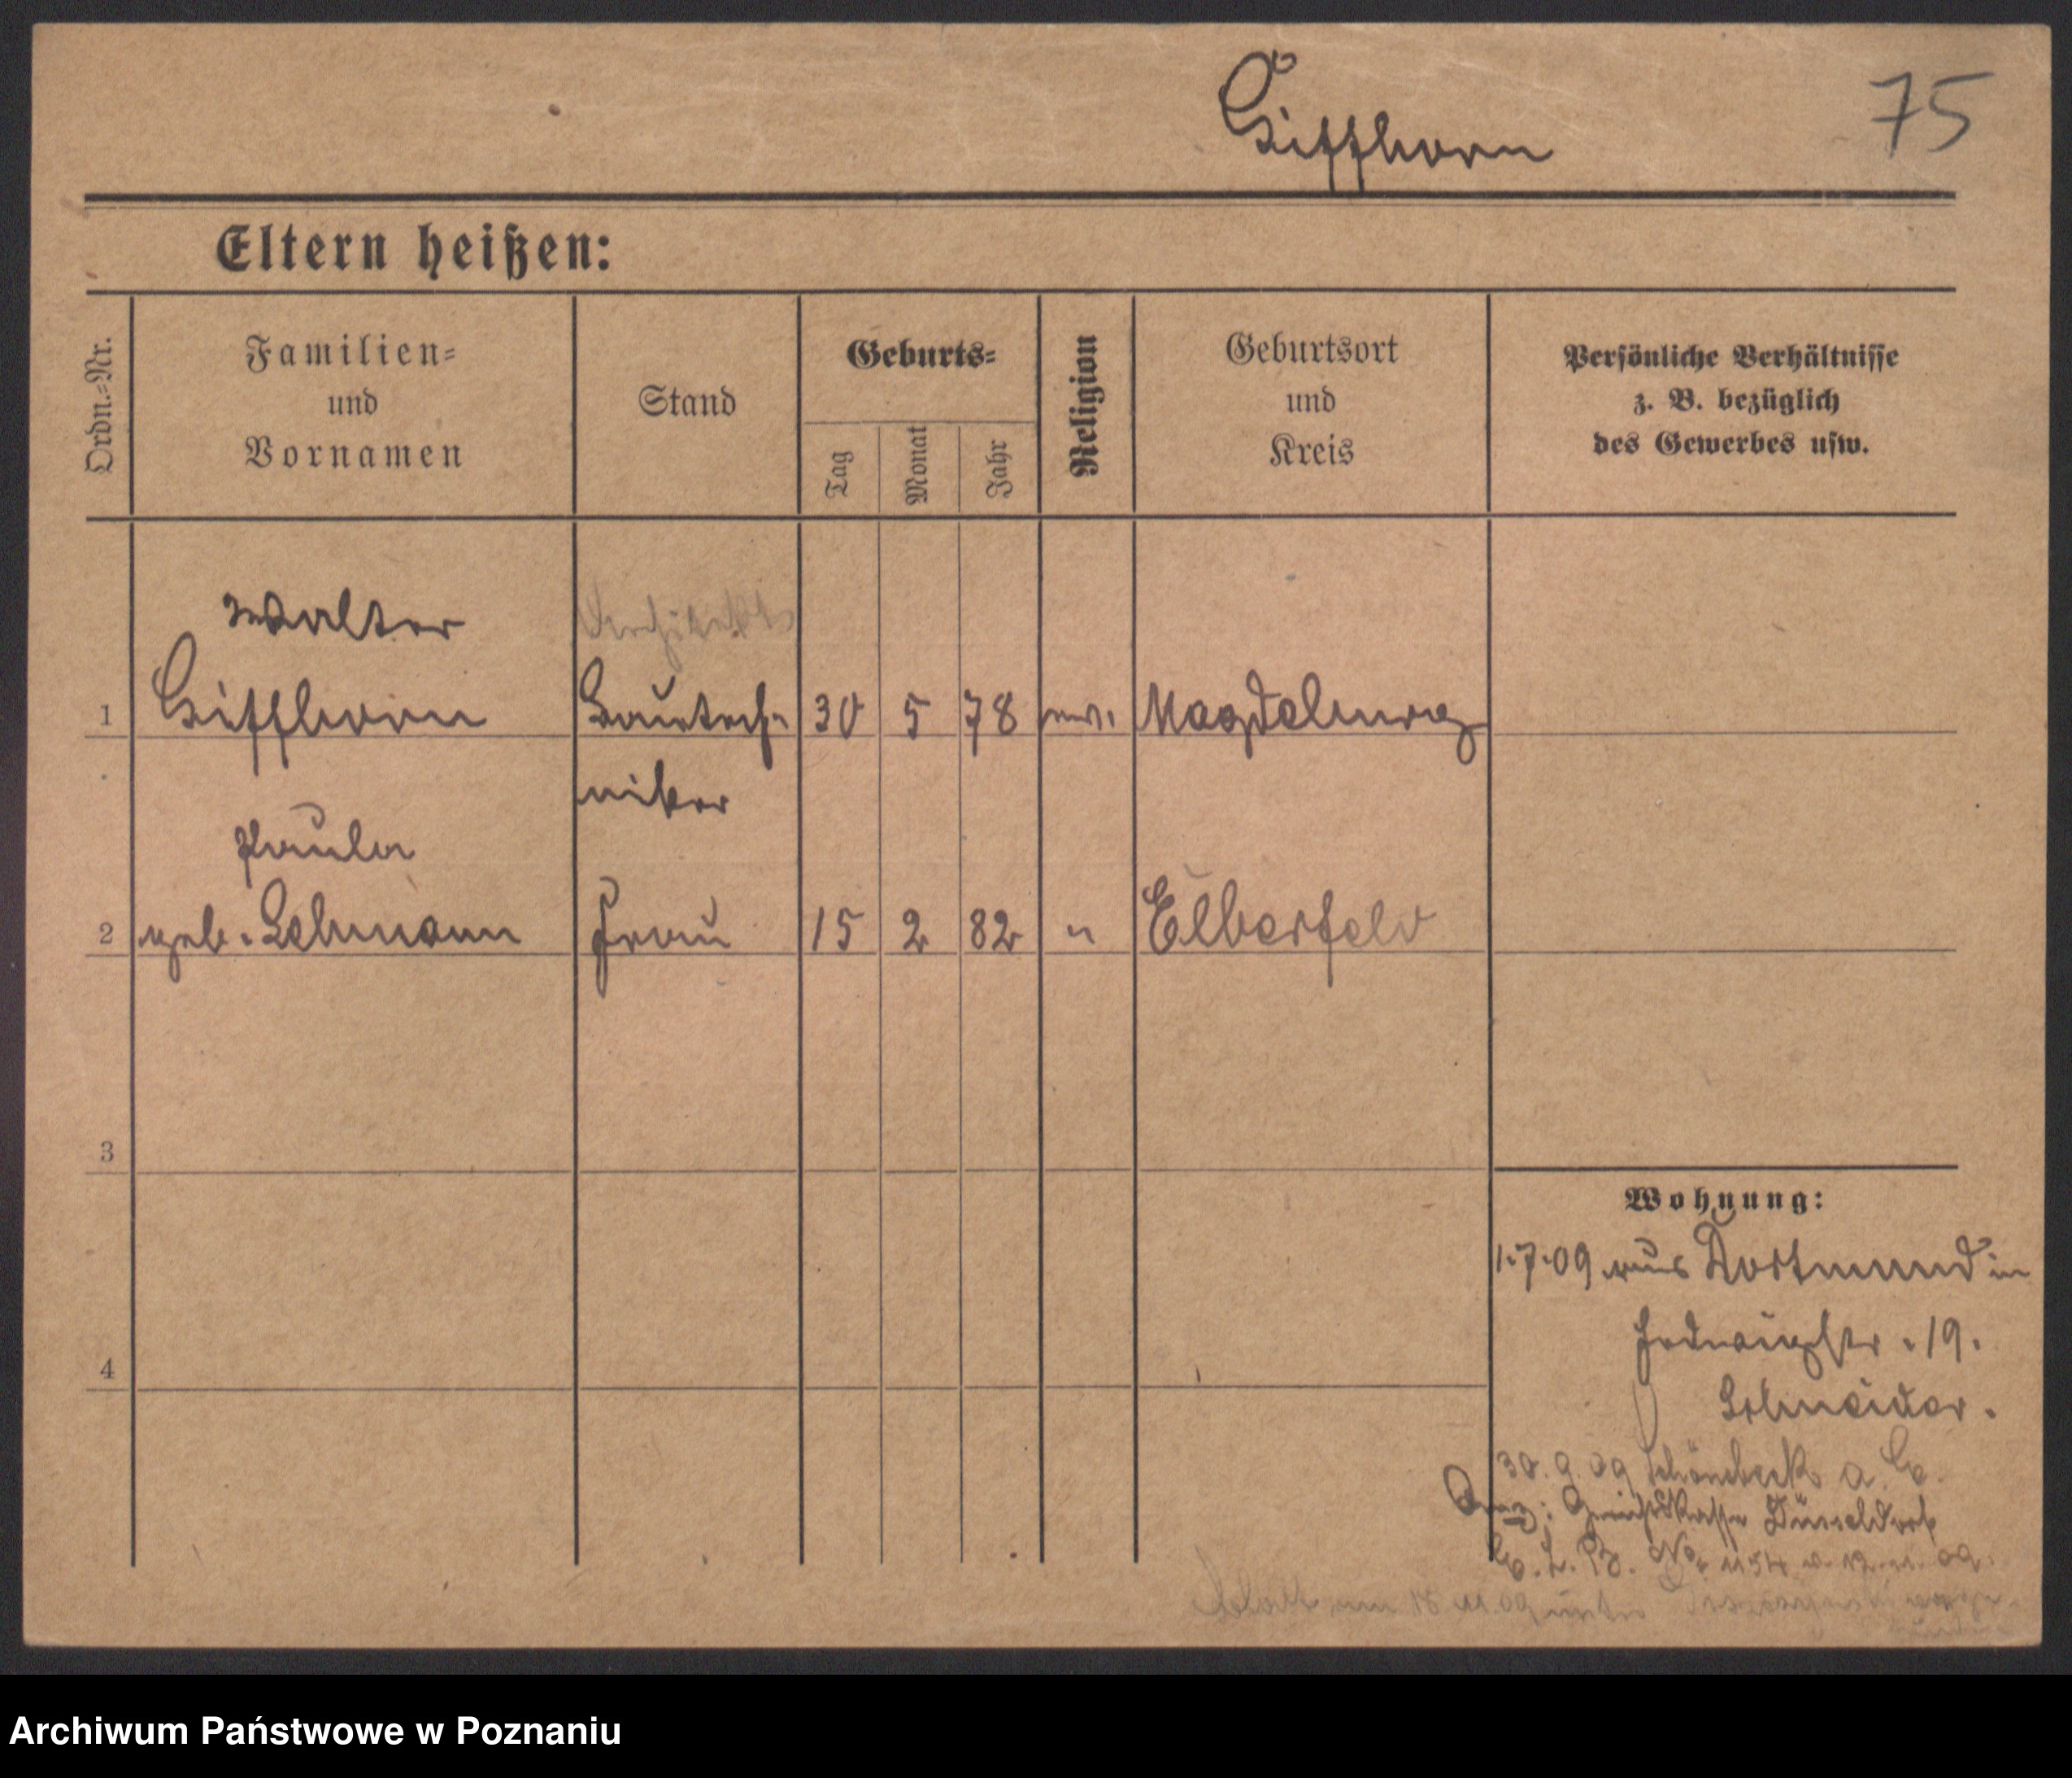 Giffhorn
75
Eltern heißen:
Ordn.=Nr.
Familien=
und
Vornamen
Stand
Geburts=
Tag
Monat
Jahr
Religion
Geburtsort
und
Kreis
Persönliche Verhältnisse
z. B. bezüglich
des Gewerbes usw.
Walter
Architekt
1 Giffhorn Bautech- 30 5 78 ev. Magdeburg
niker
Paula
2 geb. Lehmann Frau 15 2 82 " Elberfeld
3
Wohnung:
1.7.09 aus Dortmund in
Hedwigstr. 19.
4
Schneider.
30.9.09 Schönebeck a. E.
Anz: Gerichtskasse Düsseldorf
No
am 18 11 09 unter
Archiwum Państwowe w Poznaniu